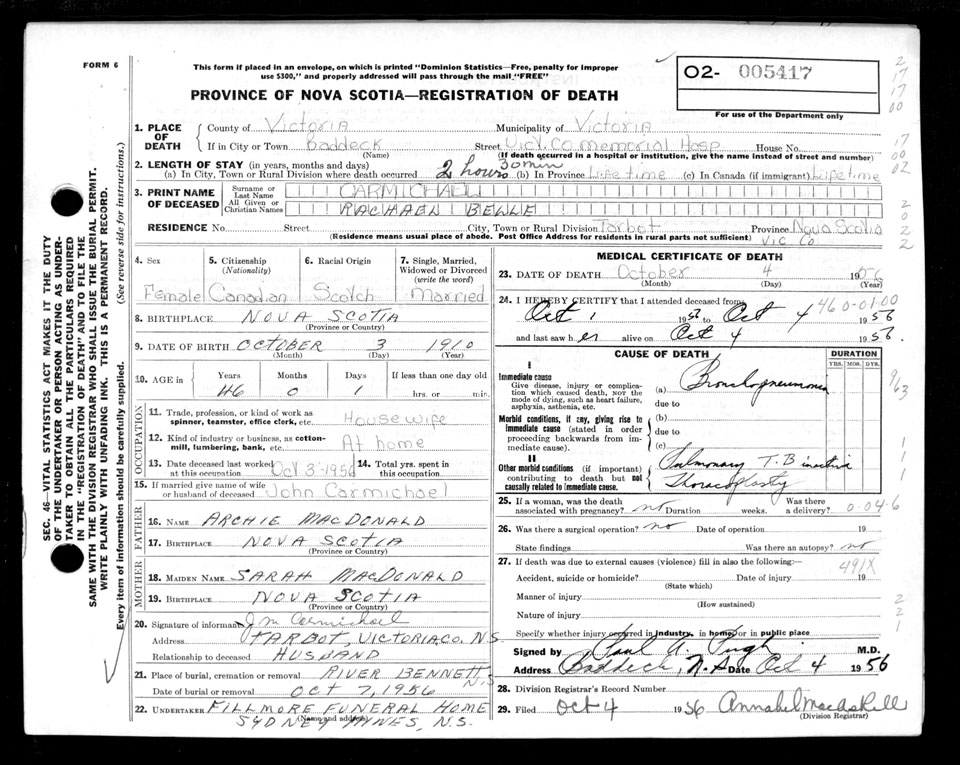 FORM 6
This form if placed in an envelope, on which is printed "Dominion Statistics—Free, penalty for improper
use $300," and properly addressed will pass through the mail "FREE"
O2- 005417
For use of the Department only
PROVINCE OF NOVA SCOTIA—REGISTRATION OF DEATH
SEC. 46—VITAL STATISTICS ACT MAKES IT THE DUTY
OF THE UNDERTAKER OR PERSON ACTING AS UNDER-
TAKER TO OBTAIN ALL THE PARTICULARS REQUIRED
IN THE "REGISTRATION OF DEATH" AND TO FILE THE
SAME WITH THE DIVISION REGISTRAR WHO SHALL ISSUE THE BURIAL PERMIT.
WRITE PLAINLY WITH UNFADING INK. THIS IS A PERMANENT RECORD.
Every item of information should be carefully supplied. (See reverse side for instructions.)
1. PLACE OF DEATH
County of Victoria Municipality of Victoria
If in City or Town Baddeck Street Vict. Co memorial Hosp House No.
(Name) (If death occurred in a hospital or institution, give the name instead of street and number)
2. LENGTH OF STAY (in years, months and days)
(a) In City, Town or Rural Division where death occurred 2 hours 30 min (b) In Province Lifetime (c) In Canada (if immigrant) Lifetime
3. PRINT NAME OF DECEASED
Surname or Last Name CARMICHAEL
All Given or Christian Names RACHAEL BELLE
RESIDENCE No. Street City, Town or Rural Division Tarbot Province Nova Scotia
(Residence means usual place of abode. Post Office Address for residents in rural parts not sufficient) Vic Co
4. Sex Female
5. Citizenship (Nationality) Canadian
6. Racial Origin Scotch
7. Single, Married, Widowed or Divorced (write the word) Married
8. BIRTHPLACE NOVA SCOTIA
(Province or Country)
9. DATE OF BIRTH OCTOBER 3 1910
(Month) (Day) (Year)
10. AGE in Years Months Days If less than one day old
46 0 1 hrs. or min.
OCCUPATION
11. Trade, profession, or kind of work as spinner, teamster, office clerk, etc. Housewife
12. Kind of industry or business, as cotton-mill, lumbering, bank, etc. At home
13. Date deceased last worked at this occupation Oct 3-1956 14. Total yrs. spent in this occupation
15. If married give name of wife or husband of deceased John Carmichael
FATHER
16. NAME ARCHIE MACDONALD
17. BIRTHPLACE NOVA SCOTIA
(Province or Country)
MOTHER
18. MAIDEN NAME SARAH MACDONALD
19. BIRTHPLACE NOVA SCOTIA
(Province or Country)
20. Signature of informant J M Carmichael
Address TARBOT, VICTORIA CO. N.S.
Relationship to deceased HUSBAND
21. Place of burial, cremation or removal RIVER BENNETT N.S.
Date of burial or removal OCT 7, 1956
22. UNDERTAKER FILLMORE FUNERAL HOME
(Name and address)
SYDNEY MINES, N.S.
MEDICAL CERTIFICATE OF DEATH
23. DATE OF DEATH October 4 1956
(Month) (Day) (Year)
24. I HEREBY CERTIFY that I attended deceased from
Oct 1 1956 to Oct 4 1956
460-01-00
and last saw her alive on Oct 4 1956.
CAUSE OF DEATH DURATION
YRS. MOS. DYS.
I
Immediate cause
Give disease, injury or complication which caused death, NOT the mode of dying, such as heart failure, asphyxia, asthenia, etc.
(a) Bronchopneumonia
due to
Morbid conditions, if any, giving rise to immediate cause (stated in order proceeding backwards from immediate cause).
(b)
due to
(c)
II
Other morbid conditions (if important) contributing to death but not causally related to immediate cause.
Pulmonary T.B inactive
Thoracoplasty
9/63
25. If a woman, was the death associated with pregnancy? no Duration weeks. Was there a delivery? 0-04-6
26. Was there a surgical operation? no Date of operation 19
State findings Was there an autopsy? no
27. If death was due to external causes (violence) fill in also the following:—
491X
Accident, suicide or homicide? Date of injury 19
(State which)
Manner of injury
(How sustained)
Nature of injury
Specify whether injury occurred in industry, in home, or in public place
Signed by Paul A. Pugh M.D.
Address Baddeck, N.S Date Oct 4 1956
28. Division Registrar's Record Number
29. Filed Oct 4 1956 Annabel MacAskill
(Division Registrar)
2
17
17
00
17
00
02
2
0
2
2
1
1
1
1
2
2
1